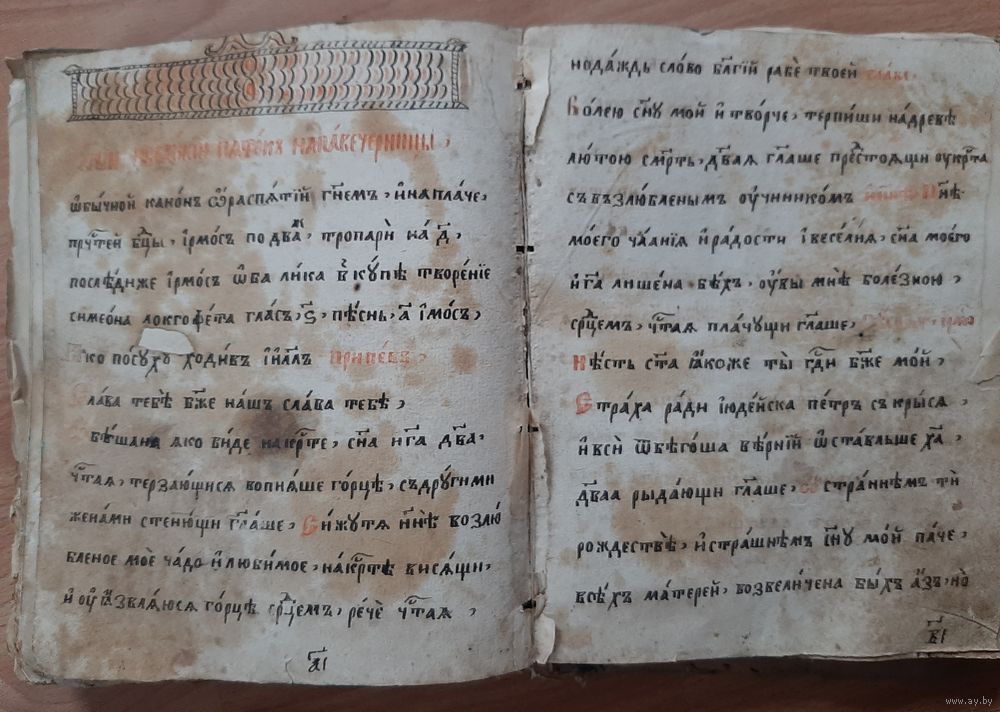 на павечерницы,
ѡбычной канѡ́нъ ѡ҆ распѧ́тїй гд҇немъ, и҆ на плаче,
пречⷭ҇тей бц҃ы, і҆рмо́съ по два́, тропарѝ на д҃,
послѣ́диже і҆рмо́съ ѻ҆ба ли́ка вкꙋ́пѣ творе́нїе
симео́на логоѳе́та гла́съ, ѕ҃, пѣ́снь, а҃ і҆рмо́съ,
ꙗко посꙋ́хꙋ ходи́въ і҆и҃ль припѣ́въ,
Сла́ва тебѣ̀ бж҃е на́шъ сла́ва тебѣ̀,
ви́де на крⷭ҇те, сн҃а и҆ гд҇а дв҃а,
чⷭ҇таѧ, терза́ющисѧ вопиѧ́ше го́рцѣ, съ дрꙋ́гими
жена́ми стеню́щи гл҃аше, ви́жꙋ тѧ нн҃ѣ возлю́
бленое моѐ ча́до и҆ люби́мое, на крⷭ҇тѣ висѧ́щи,
и҆ оу҆ѧзвлѧ́юсѧ го́рцѣ срⷣцемъ, речѐ чⷭ҇таѧ,
а҃і
но да́ждь сло́во бл҃гїй рабѐ твоей сла́ва,
Во́лею сн҃ꙋ мой и҆ тво́рче, терпи́ши на древѣ
лю́тою сме́рть, дв҃аѧ гл҃аше пре́стоѧщи оу҆ крⷭ҇та
съ възлю́бленымъ оу҆чн҃ико́мъ и҆ нн҃ѣ
Моего ча́ꙗнїѧ и҆ ра́дости і҆ весе́лїѧ, сн҃а моего
и҆ гд҇а лише́на бѣ́хъ, оу҆вы мнѣ̀ боле́знюю,
срⷣцемъ, чⷭ҇таѧ пла́чꙋщи гл҃аше,
Нѣ́сть ст҃а ꙗ҆́коже ты̀ гдⷭ҇и бж҃е мо́й,
Стра́ха ра́ди і҆юде́йска пе́тръ съкры́сѧ,
и҆ всѝ ѿбѣго́ша вѣ́рнїй ѡ҆ста́вльше хⷭ҇а,
дв҃аѧ рыда́ющи гл҃аше, ѽ стра́ннѣмъ тѝ
рождествѣ̀, и҆ стра́шнѣмъ сн҃ꙋ мо́й па́че,
всѣ́хъ ма́терей, возвели́чена бы́хъ а҆́зъ, но̀
в҃і
www.ay.by